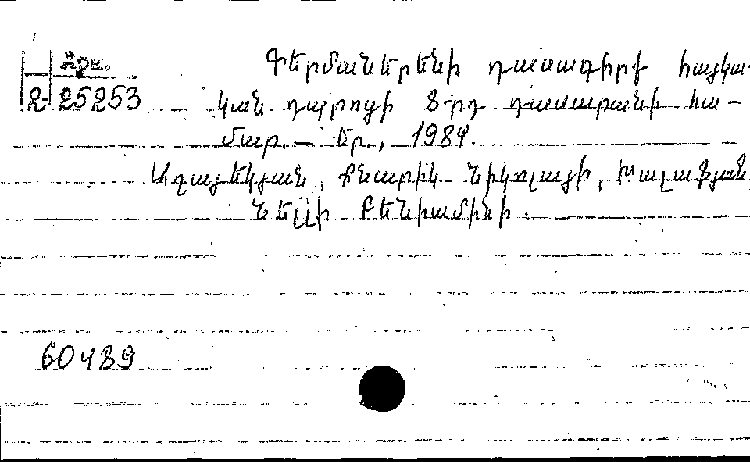 Հրատ.
2 25253
Գերմաներենի դասագիրք հայկա-
կան դպրոցի 8-րդ դասարանի հա-
մար. - Եր., 1984.
Աղաբեկյան, Քնարիկ Նիկոլայի, Խալաֆյան,
Նելլի Բենիամինի.
60489